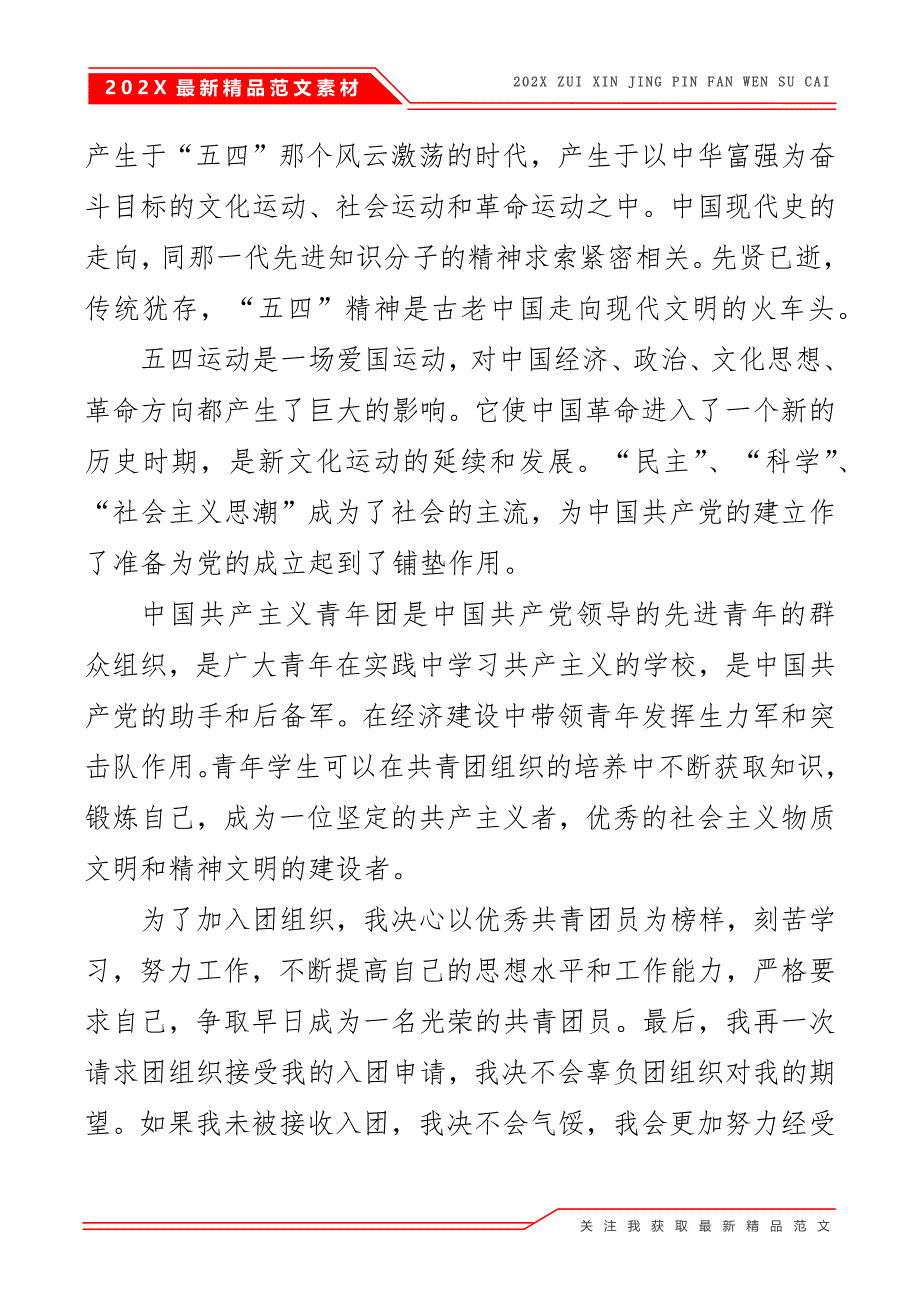 202X最新精品范文素材
202X ZUI XIN JING PIN FAN WEN SU CAI
产生于“五四”那个风云激荡的时代，产生于以中华富强为奋
斗目标的文化运动、社会运动和革命运动之中。中国现代史的
走向，同那一代先进知识分子的精神求索紧密相关。先贤已逝，
传统犹存，“五四”精神是古老中国走向现代文明的火车头。
五四运动是一场爱国运动，对中国经济、政治、文化思想、
革命方向都产生了巨大的影响。它使中国革命进入了一个新的
历史时期，是新文化运动的延续和发展。“民主”、“科学”、
“社会主义思潮”成为了社会的主流，为中国共产党的建立作
了准备为党的成立起到了铺垫作用。
中国共产主义青年团是中国共产党领导的先进青年的群
众组织，是广大青年在实践中学习共产主义的学校，是中国共
产党的助手和后备军。在经济建设中带领青年发挥生力军和突
击队作用。青年学生可以在共青团组织的培养中不断获取知识，
锻炼自己，成为一位坚定的共产主义者，优秀的社会主义物质
文明和精神文明的建设者。
为了加入团组织，我决心以优秀共青团员为榜样，刻苦学
习，努力工作，不断提高自己的思想水平和工作能力，严格要
求自己，争取早日成为一名光荣的共青团员。最后，我再一次
请求团组织接受我的入团申请，我决不会辜负团组织对我的期
望。如果我未被接收入团，我决不会气馁，我会更加努力经受
关注我获取最新精品范文